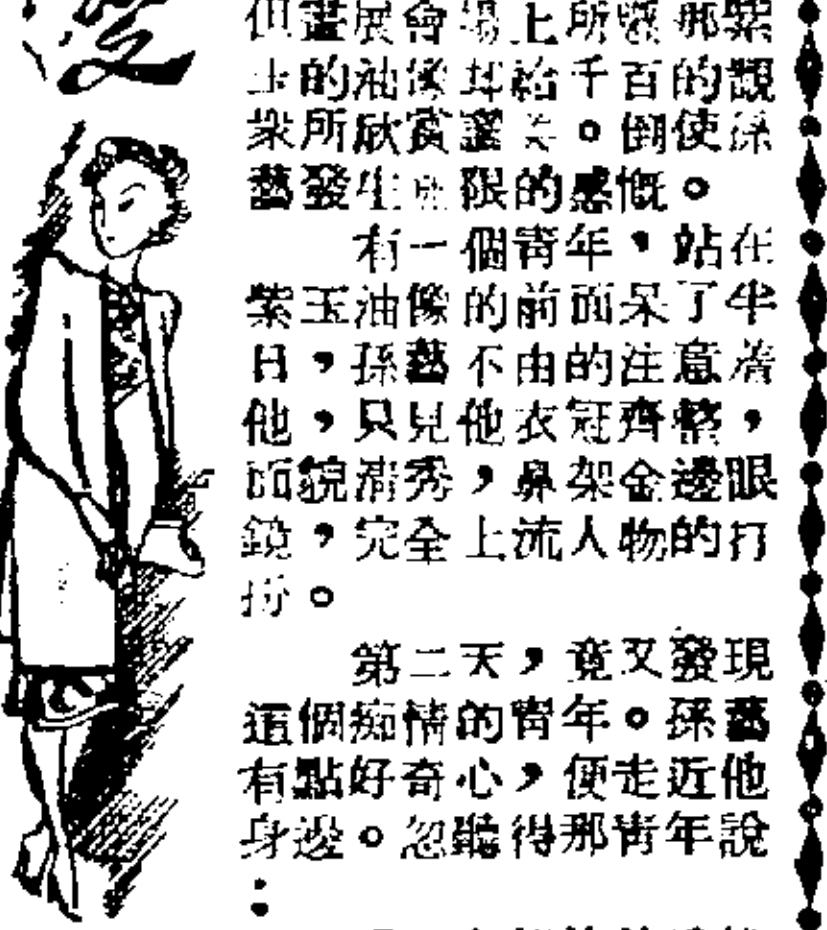 愛
但畫展會場上所懸那紫
玉的油像却給千百的觀
衆所欣賞讚美。倒使孫
藝發生無限的感慨。
有一個靑年，站在
紫玉油像的前面呆了半
日，孫藝不由的注意着
他，只見他衣冠齊整，
面貌淸秀，鼻架金邊眼
鏡，完全上流人物的打
扮。
第二天，竟又發現
這個痴情的靑年。孫藝
有點好奇心，便走近他
身邊。忽聽得那靑年說
：